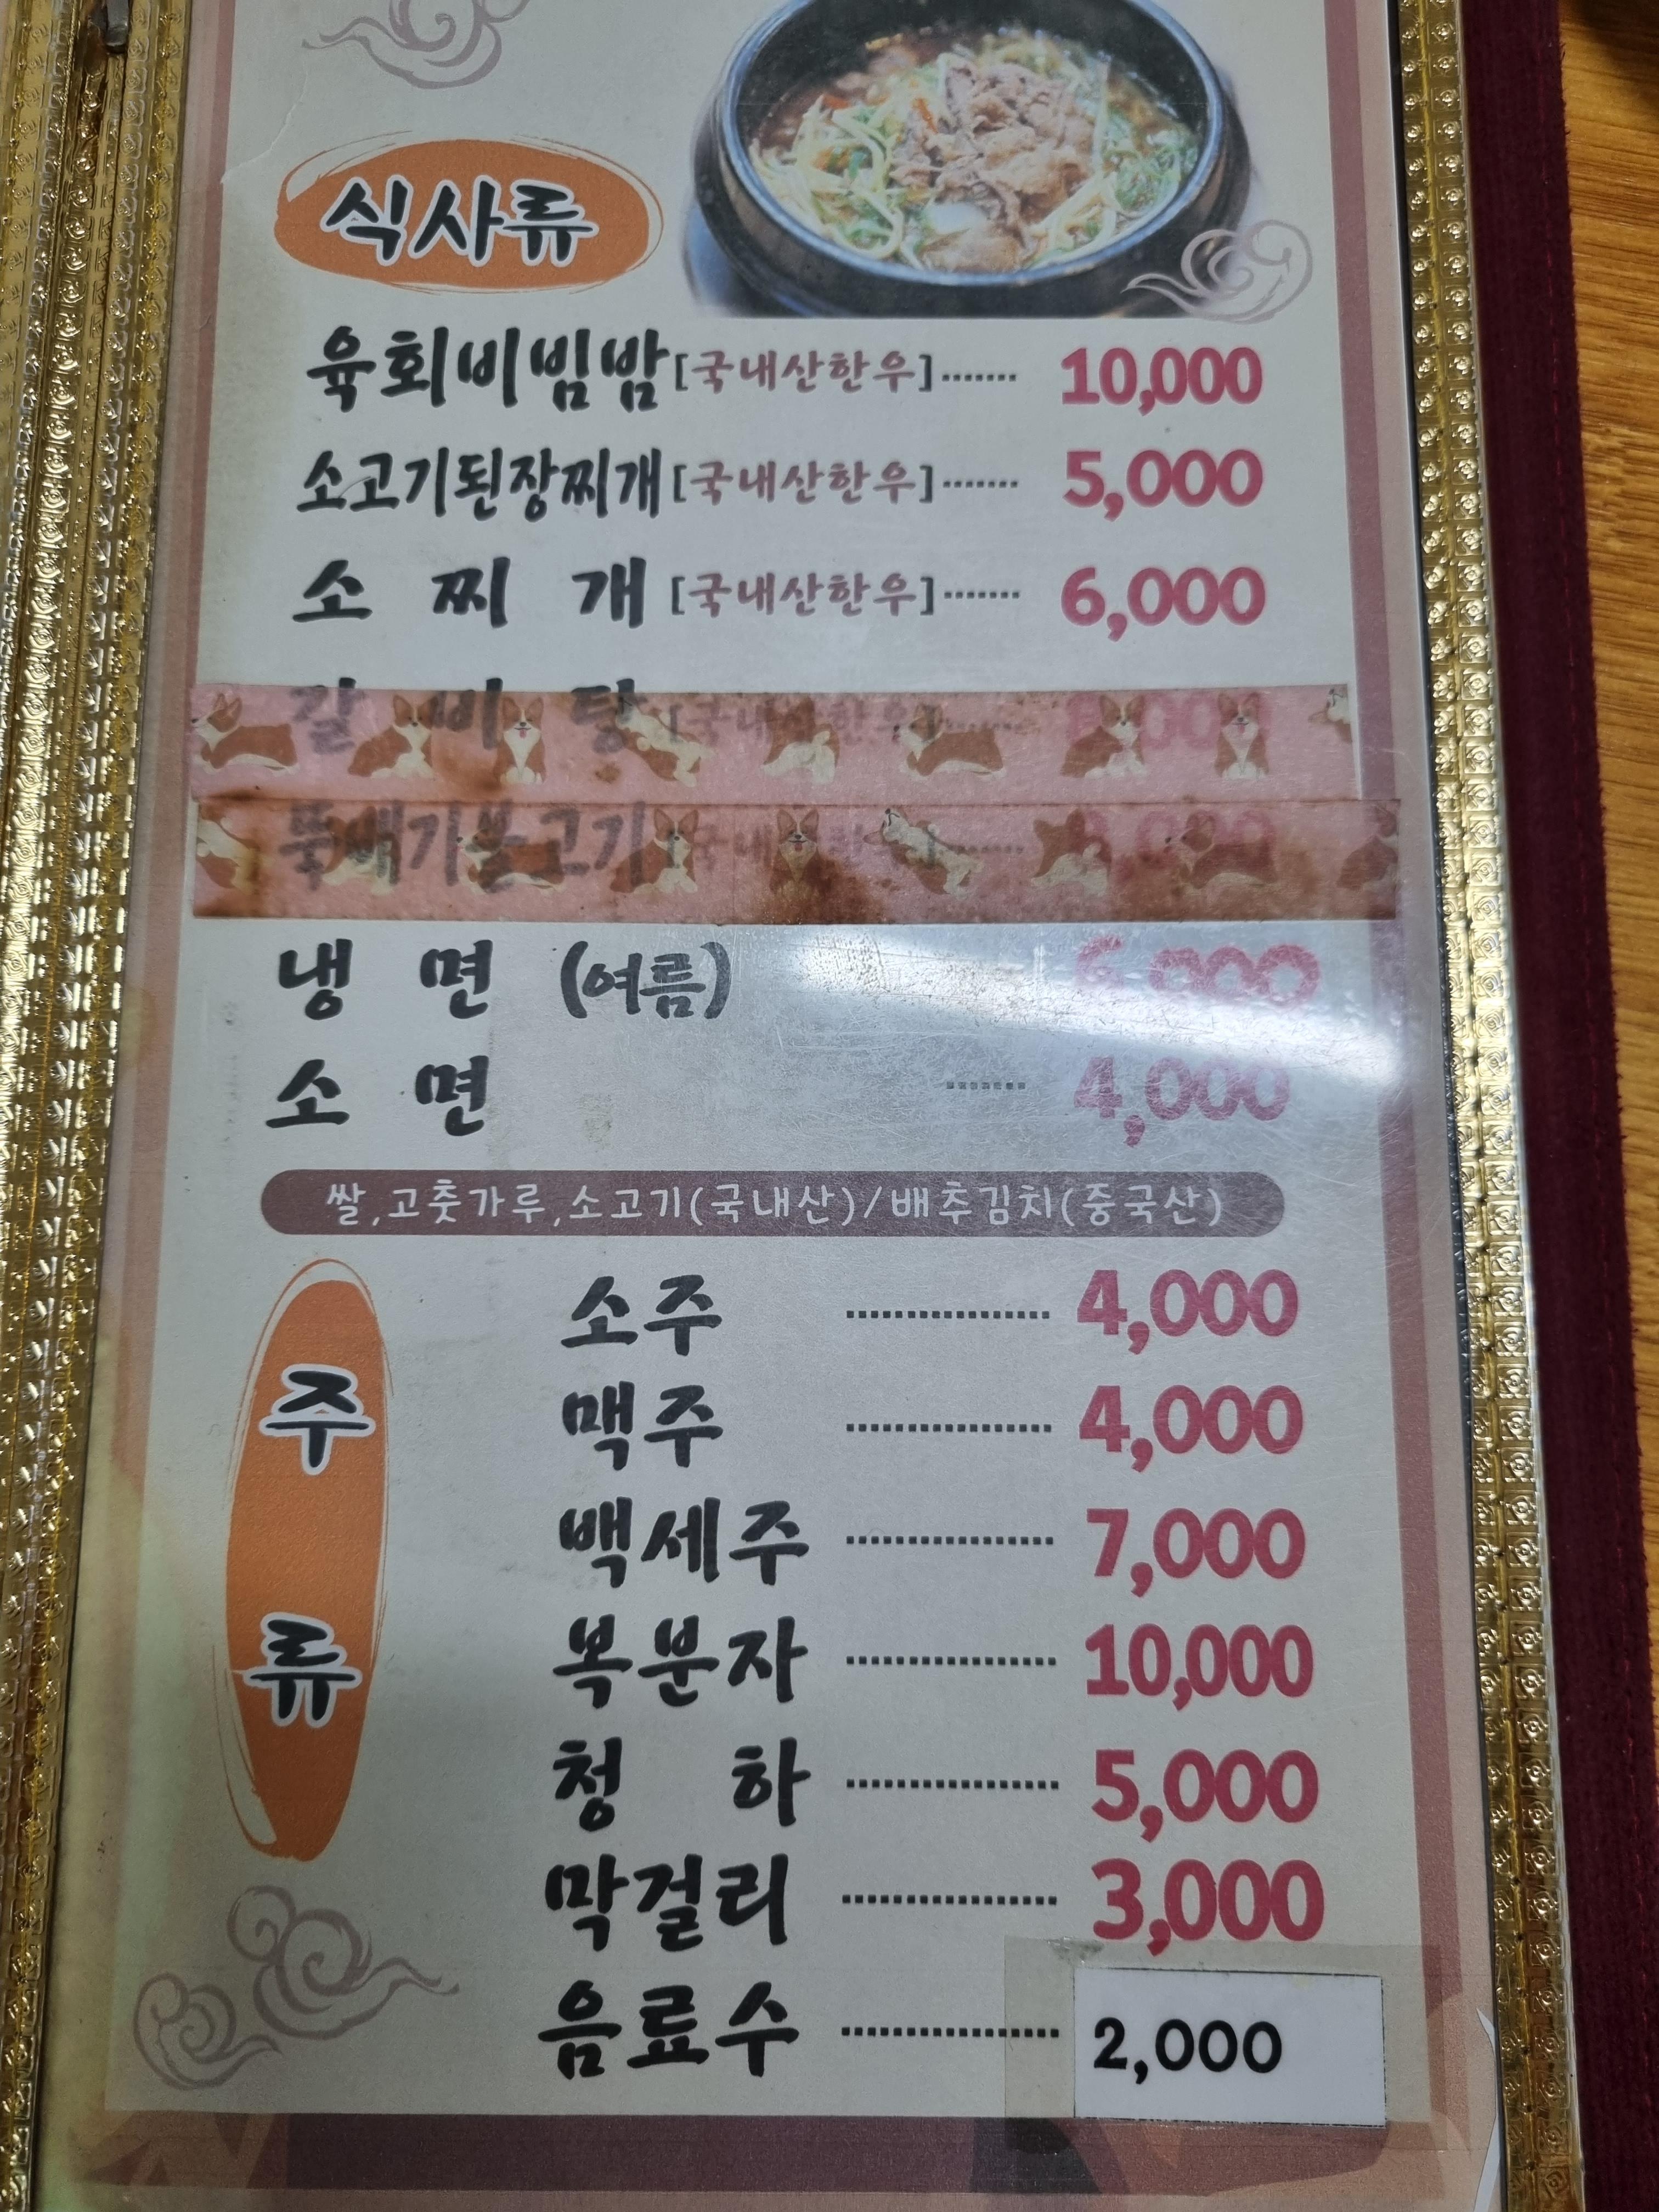 식사류
육회비빔밥[국내산한우]······· 10,000
소고기된장찌개[국내산한우]······· 5,000
소 찌 개 [국내산한우]······· 6,000
갈 비 탕 [국내산한우]·······
뚝배기불고기[국내산한우]·······
냉 면 (여름) 6,000
소 면 ······· 4,000
쌀,고춧가루,소고기(국내산)/배추김치(중국산)
주류
소주 ·················· 4,000
맥주 ·················· 4,000
백세주 ·················· 7,000
복분자 ·················· 10,000
청 하 ·················· 5,000
막걸리 ·················· 3,000
음료수 ·················· 2,000